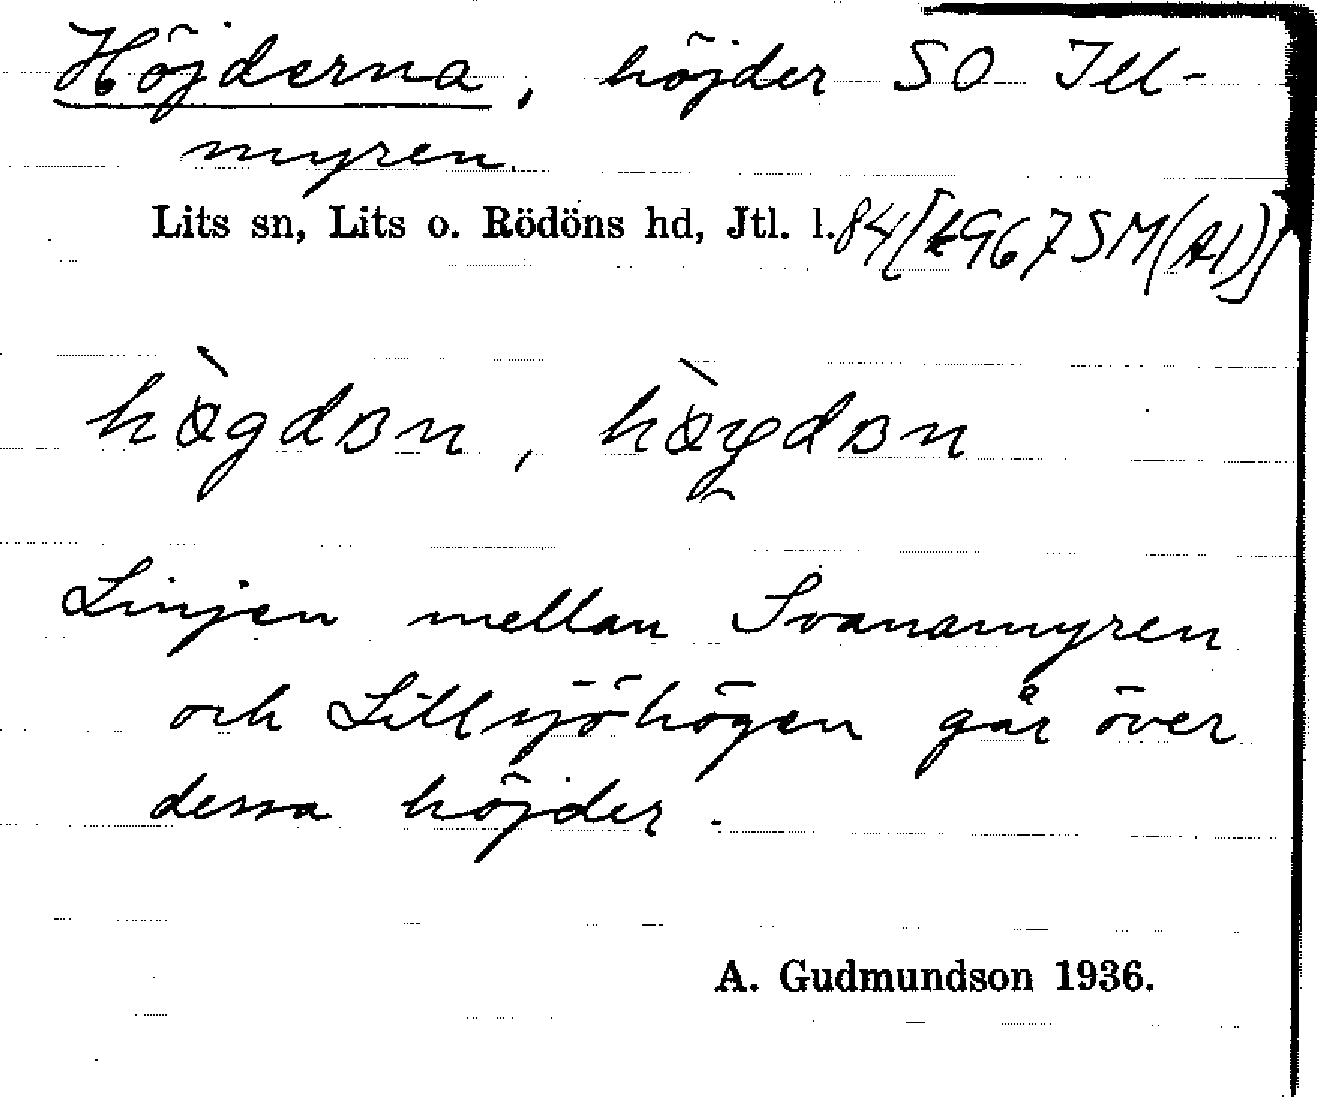 Höjderna, höjder SO Ill-
myren.
Lits sn, Lits o. Rödöns hd, Jtl. l. 84 [ 967 SM(AI)]
Linjen mellan Svanamyren
och Lillsjöhögen går över
dessa höjder.
A. Gudmundson 1936.